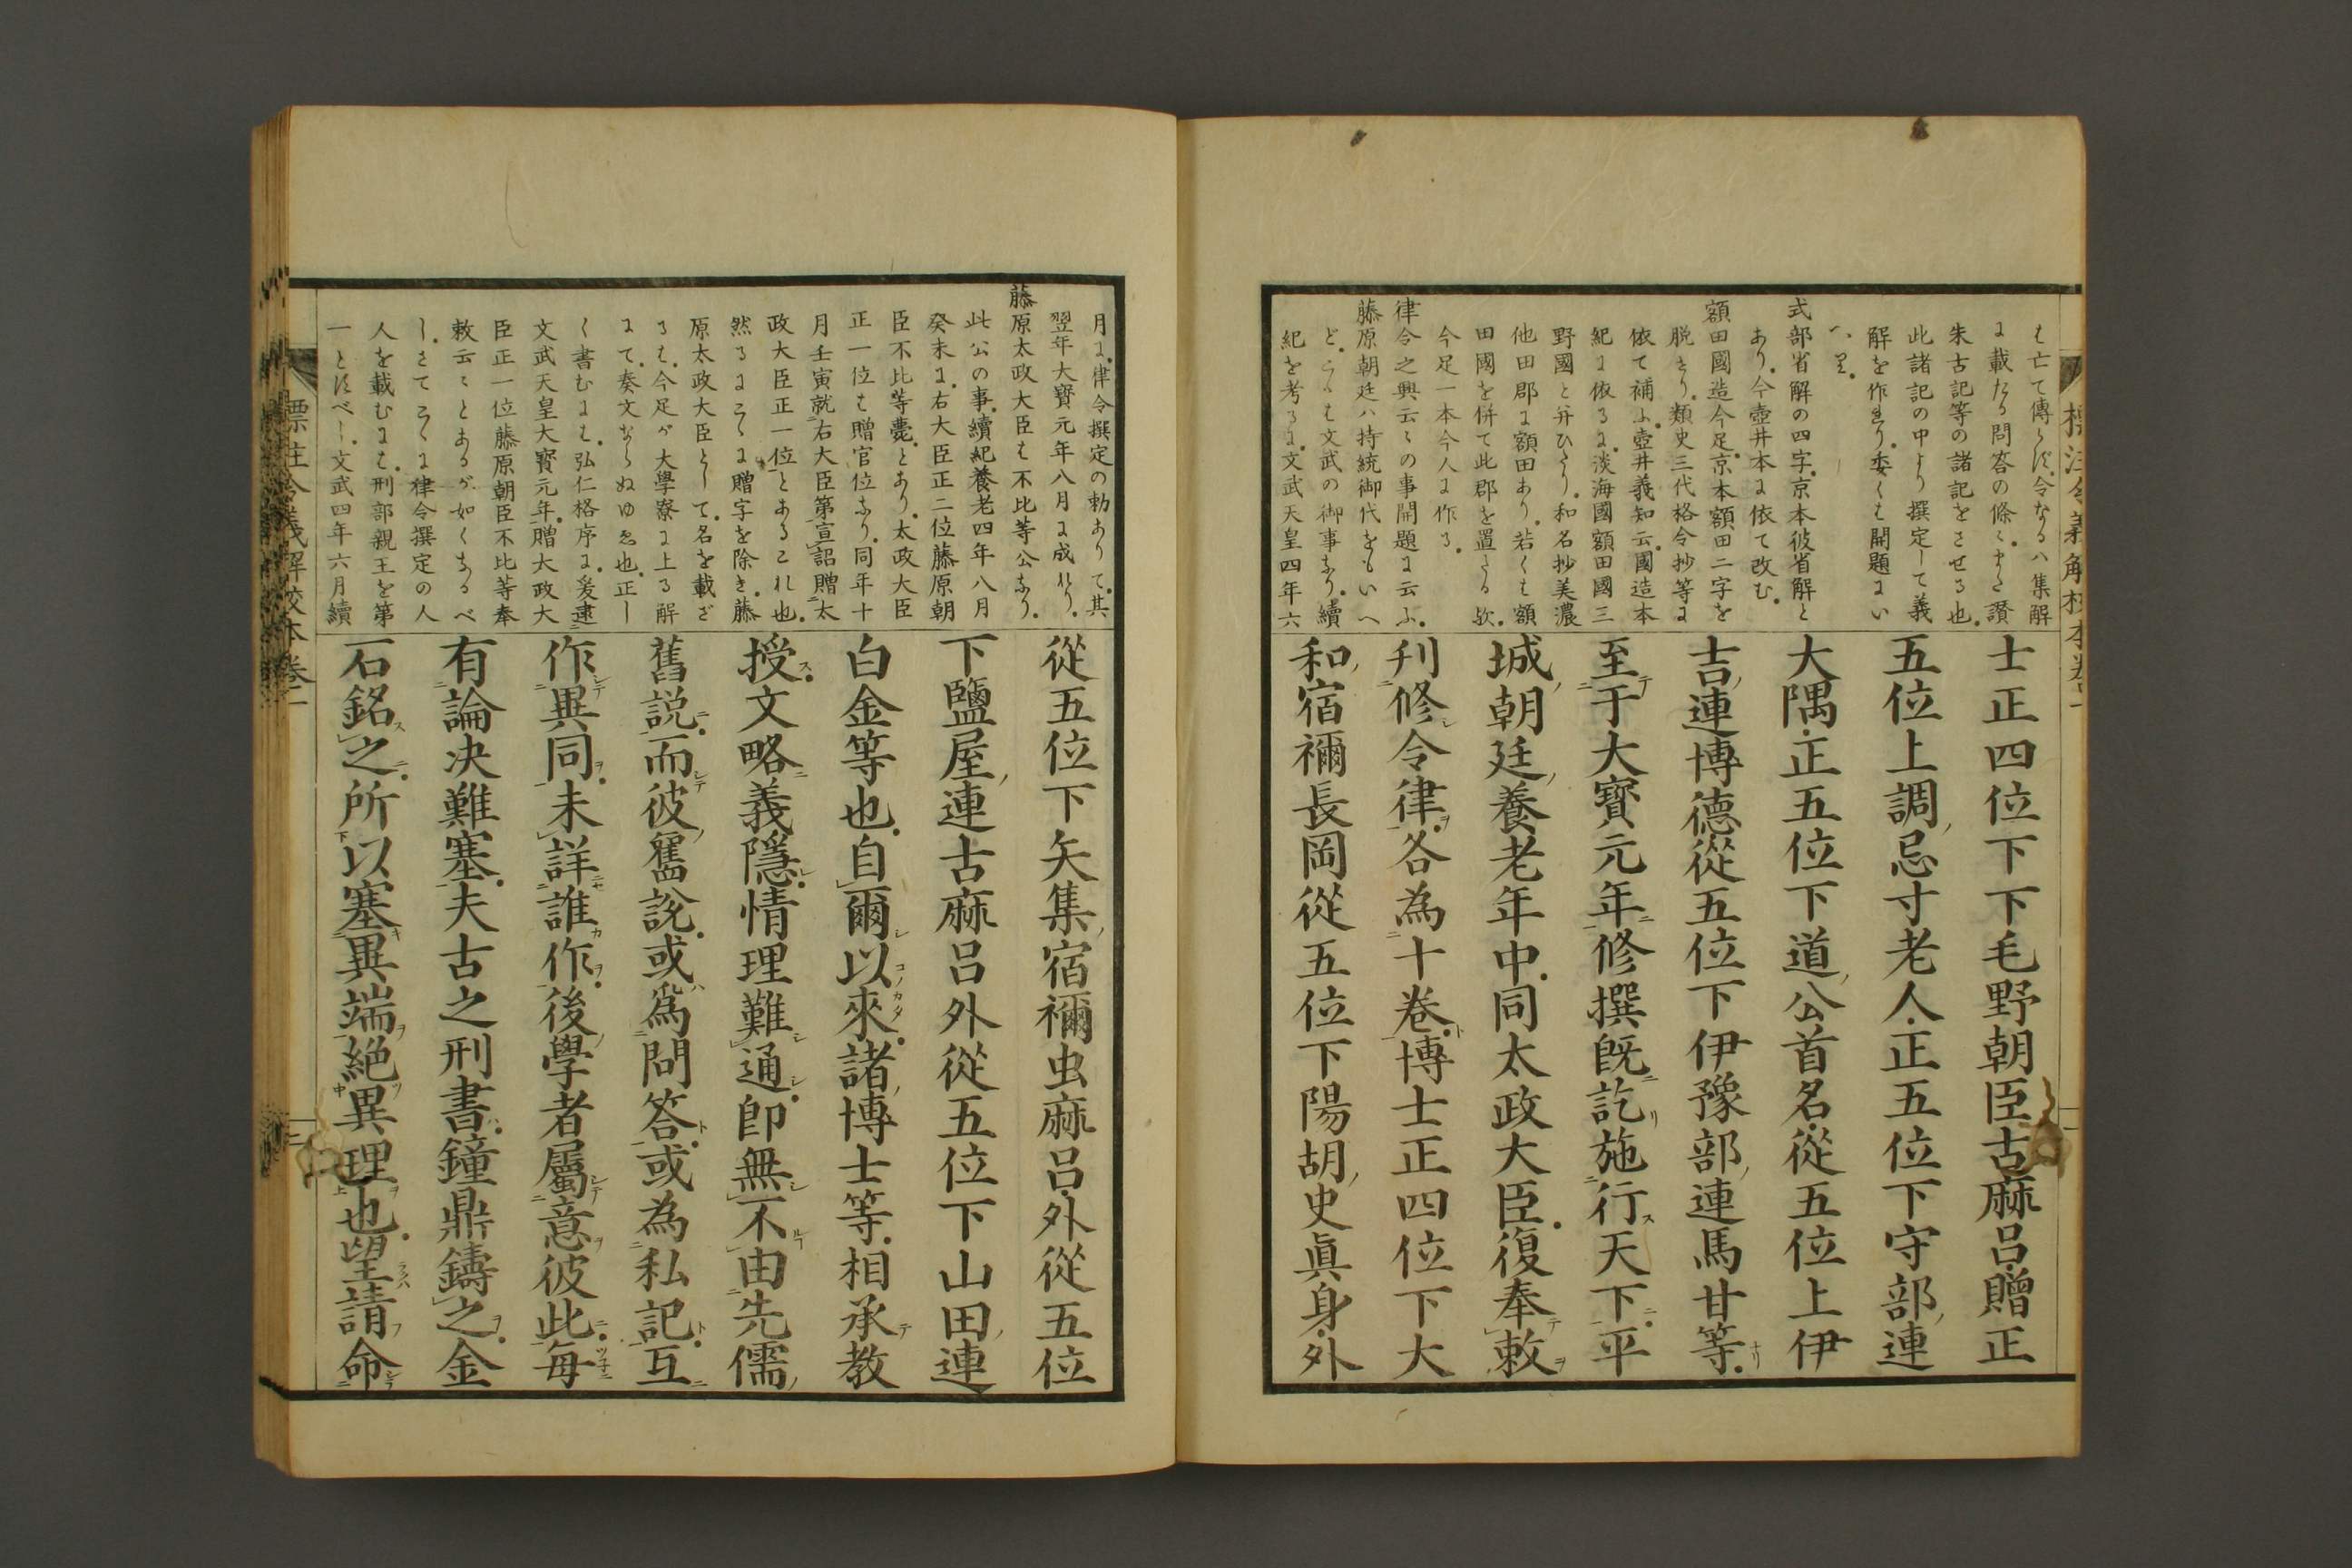 標注令義解校本卷一
は亡て傳らず。今なるハ集解
に載たる問答の條〻。また讃
朱古記等の諸記をさせる也。
此諸記の中より撰定して義
解を作れり。委くは開題にい
へり。
式部省解の四字。京本彼省解と
あり。今壺井本に依て改む。
額田國造今足。京本額田二字を
脱せり。類史三代格令抄等に
依て補ふ。壺井義知云。國造本
紀に依るに。淡海國額田國三
野國と并ひたり。和名抄美濃
他田郡に額田あり。若くは額
田國を併て此郡を置たる欤。
今足一本今人に作る。
律令之興云〻の事開題に云ふ。
藤原朝廷ハ持統御代をもいへ
ど。こゝは文武の御事なり。續
紀を考るに。文武天皇四年六
士正四位下下毛野朝臣古麻呂贈正
五位上調忌寸老人正五位下守部連
大隅正五位下道公首名從五位上伊
吉連博德從五位下伊豫部連馬甘等
至于大寳元年修撰既訖施行天下平
城朝廷養老年中同太政大臣復奉敕
刋修令律各為十卷博士正四位下大
和宿禰長岡從五位下陽胡史眞身外
月に。律令撰定の勅ありて。其
翌年大寳元年八月に成れり。
藤原太政大臣は不比等公なり。
此公の事。續紀養老四年八月
癸未に。右大臣正二位藤原朝
臣不比等薨。とあり。太政大臣
正一位は贈官位なり。同年十
月壬寅就右大臣第宣詔贈太
政大臣正一位とあるこれ也。
然るにこゝに贈字を除き。藤
原太政大臣として。名を載ざ
るは。今足が大學寮に上る解
にて。奏文ならぬゆゑ也。正し
く書むには。弘仁格序に。爰逮
文武天皇大寳元年。贈太政大
臣正一位藤原朝臣不比等奉
敕云〻とあるが如くなるべ
し。さてこゝに律令撰定の人
人を載むには。刑部親王を第
一とすべし。文武四年六月續
從五位下矢集宿禰虫麻呂外從五位
下鹽屋連古麻呂外從五位下山田連
白金等也自爾以來諸博士等相承教
授文略義隱情理難通卽無不由先儒
舊説而彼舊説或爲問答或為私記互
作異同未詳誰作後學者屬意彼此毎
有論决難塞夫古之刑書鐘鼎鑄之金
石銘之所以塞異端絕異理也望請命
標注令義解校本卷一